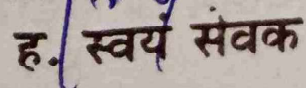 ह. स्वयं सेवक